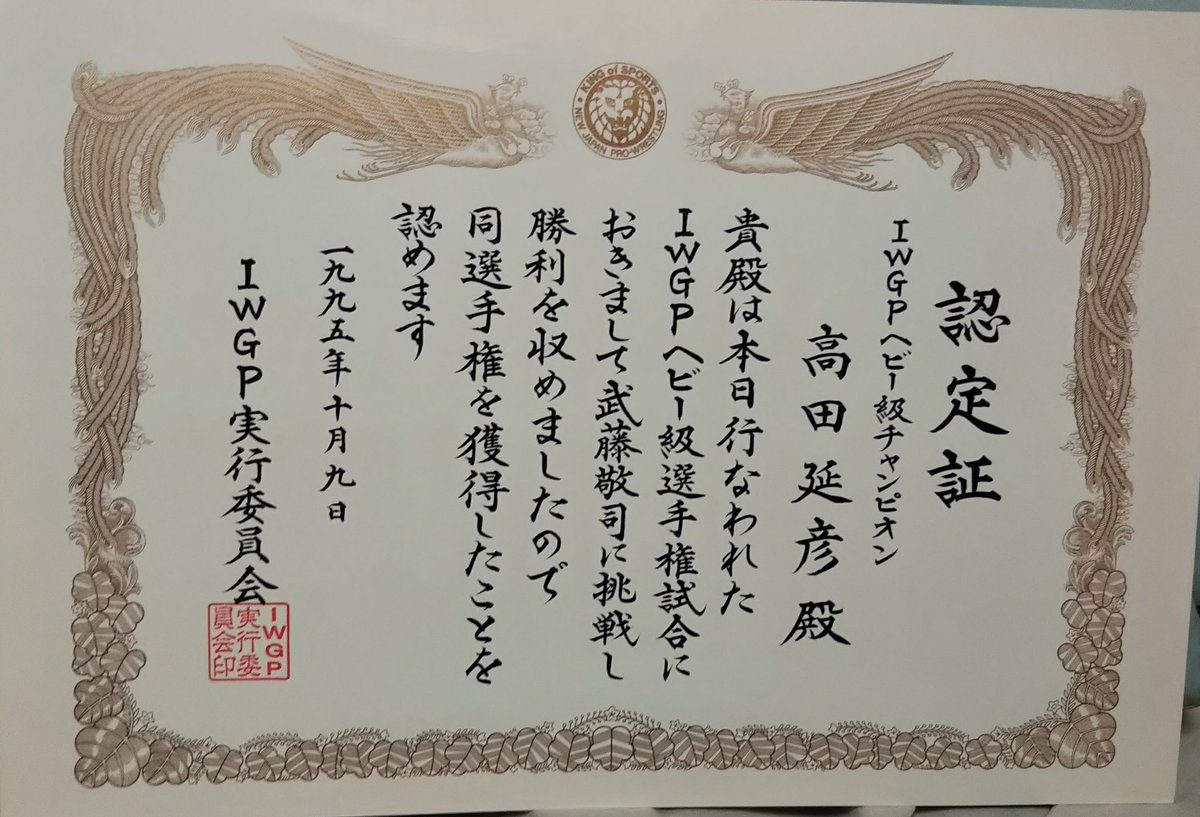 KING of SPORTS
NEW JAPAN PRO-WRESTLING
認定証
IWGPヘビー級チャンピオン
高田延彦殿
貴殿は本日行なわれた
IWGPヘビー級選手権試合に
おきまして武藤敬司に挑戦し
勝利を収めましたので
同選手権を獲得したことを
認めます
一九九五年十月九日
IWGP実行委員会
IWGP
実行委
員会印